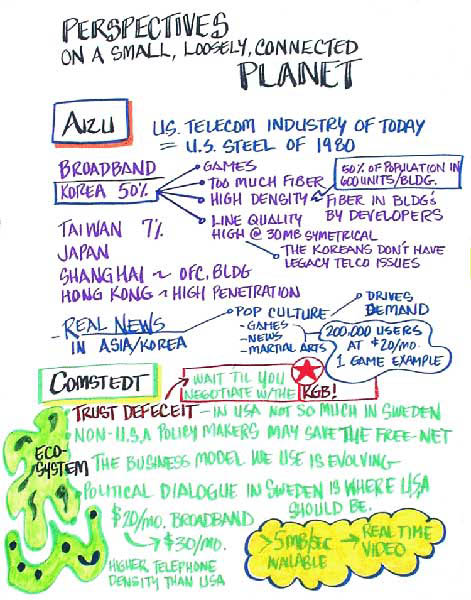 PERSPECTIVES
ON A SMALL, LOOSELY, CONNECTED
PLANET
AIZU
U.S. TELECOM INDUSTRY OF TODAY
= U.S. STEEL OF 1980
BROADBAND
KOREA 50%
GAMES
TOO MUCH FIBER
HIGH DENSITY
50% OF POPULATION IN
600 UNITS/BLDG.
FIBER IN BLDG'S
BY DEVELOPERS
LINE QUALITY
HIGH @ 30MB SYMETRICAL
THE KOREANS DON'T HAVE
LEGACY TELCO ISSUES
TAIWAN 7%
JAPAN
SHANGHAI ~ OFC. BLDG
HONG KONG ~ HIGH PENETRATION
- REAL NEWS
IN ASIA/KOREA
POP CULTURE
- GAMES
- NEWS
- MARTIAL ARTS
DRIVES
DEMAND
200,000 USERS
AT $20/MO.
1 GAME EXAMPLE
COMSTEDT
WAIT TIL YOU
NEGOTIATE W/THE RGB!
TRUST DEFECEIT - IN USA NOT SO MUCH IN SWEDEN
NON-U.S.A POLICY MAKERS MAY SAVE THE FREE-NET
ECO-
SYSTEM
THE BUSINESS MODEL WE USE IS EVOLVING
POLITICAL DIALOGUE IN SWEDEN IS WHERE USA
SHOULD BE.
$20/MO. BROADBAND
$30/MO.
HIGHER TELEPHONE
DENSITY THAN USA
>5MB/SEC
AVAILABLE
REAL TIME
VIDEO